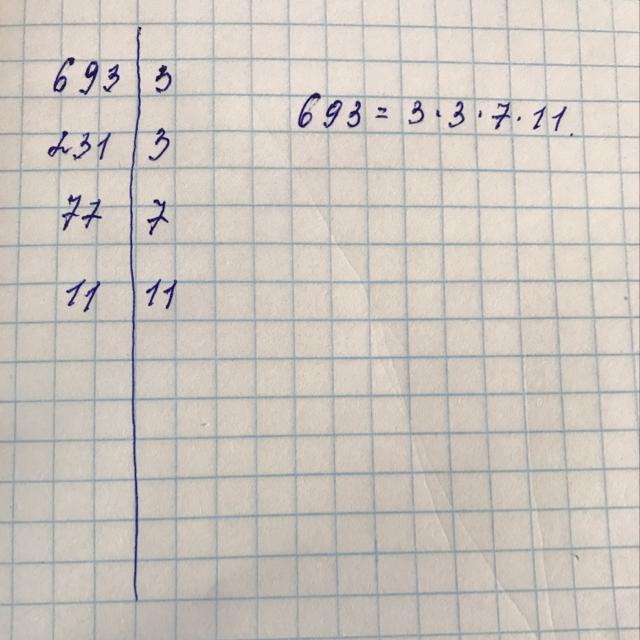 693 | 3
693 = 3 · 3 · 7 · 11.
231 | 3
77 | 7
11 | 11